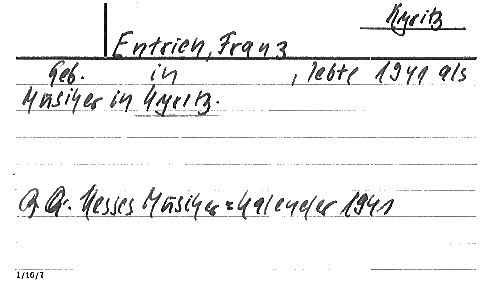 Kyritz
Entrich, Franz
Geb. in , lebte 1941 als
Musiker in Kyritz.
Hesses Musiker=Kalender 1941
1/16/7